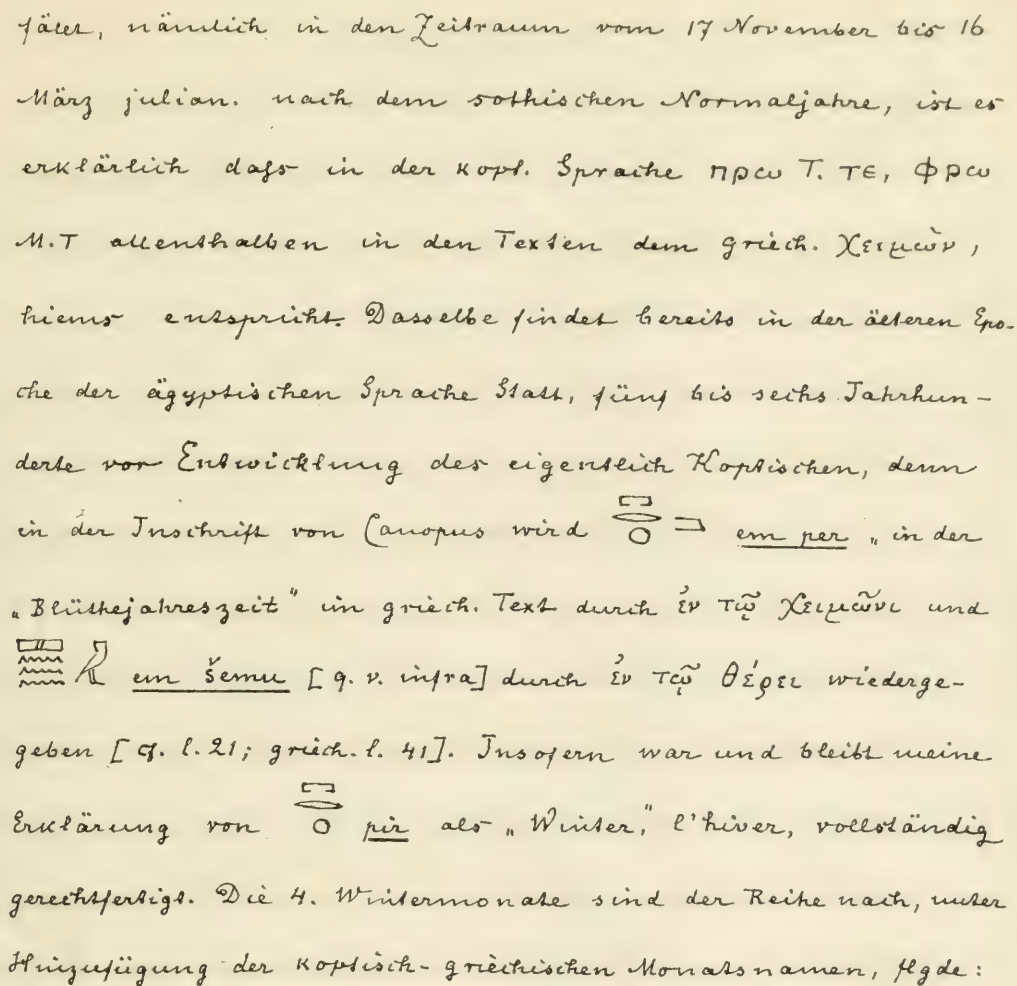 fället, nämlich in den Zeitraum vom 17 November bis 16
März julian. nach dem sothischen Normaljahre, ist es
erklärlich daſs in der kopt. Sprache ⲡⲣⲱ T. ⲧⲉ, ⲫⲣⲱ
M.T allenthalben in den Texten dem griech. χειμὼν,
hiems entspricht. Dasselbe findet bereits in der älteren Epo-
che der ägyptischen Sprache Statt, fünf bis sechs Jahrhun-
derte vor Entwicklung des eigentlich Koptischen, denn
in der Inschrift von Canopus wird 𓉐𓂋𓇳 𓐛 em per „in der
„Blüthejahreszeit" im griech. Text durch ἐν τῷ χειμῶνι und
𓈙𓈗 em šemu [q. v. infra] durch ἐν τῷ θέρει wiederge-
geben [cf. l. 21; griech. l. 41]. Insofern war und bleibt meine
Erklärung von 𓉐𓂋𓇳 pir als „Winter," l'hiver, vollständig
gerechtfertigt. Die 4. Wintermonate sind der Reihe nach, unter
Hinzufügung der koptisch-griechischen Monatsnamen, flgde: